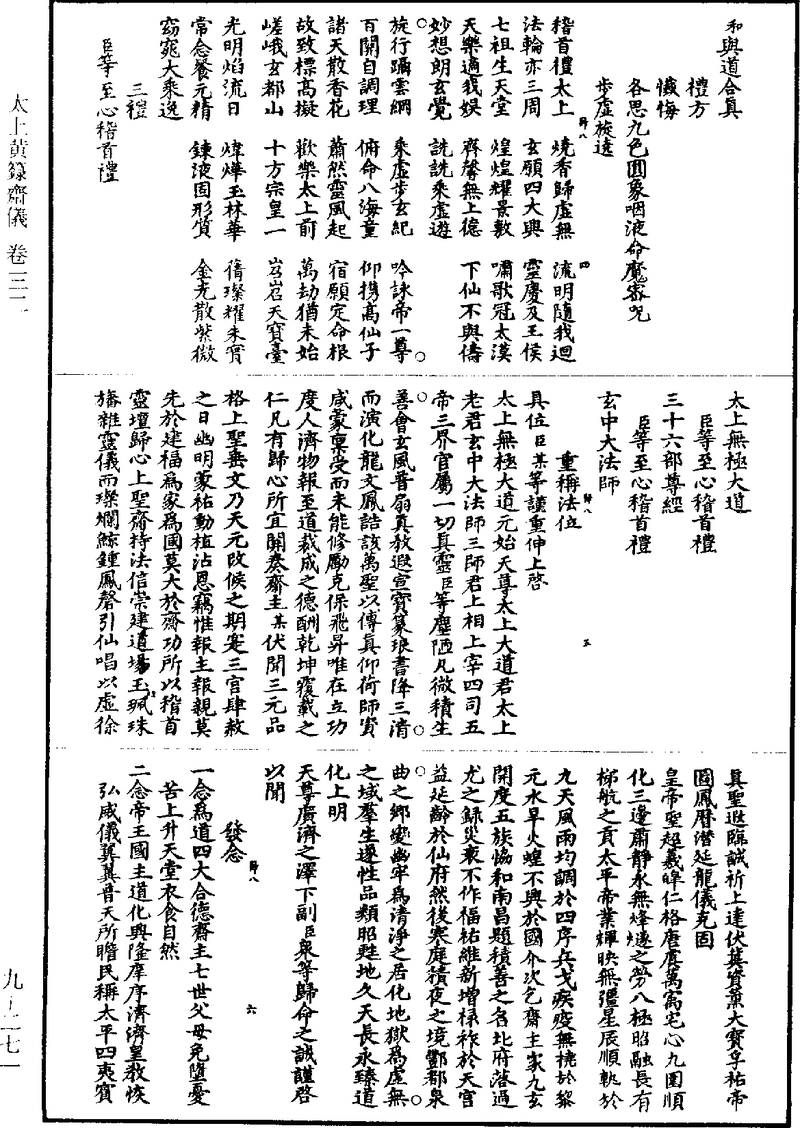 和與道合眞
禮方
懺悔
各思九色圓象咽液命魔密呪
步虛旋遶
稽首禮太上　燒香歸虛無　流明隨我迴
法輪亦三周　玄願四大興　靈慶及王侯
七祖生天堂　煌煌耀景敷　嘯歌冠太漠
天樂適我娛　齊馨無上德　下仙不與儔
妙想朗玄覺　詵詵乘虛遊
旋行躡雲綱　乘虛步玄紀　吟詠帝一尊
百關自調理　俯命八海童　仰攜高仙子
諸天散香花　蕭然靈風起　宿願定命根
故致標高擬　歡樂太上前　萬劫猶未始
嵯峨玄都山　十方宗皇一　岧岧天寶臺
光明焰流日　煒燁玉林華　蒨璨耀朱實
常念餐元精　鍊液固形質　金光散紫微
窈窕大乘逸
三禮
臣等至心稽首禮
太上無極大道
臣等至心稽首禮
三十六部尊經
臣等至心稽首禮
玄中大法師
重稱法位
具位臣某等謹重伸上啓
太上無極大道元始天尊太上大道君太上
老君玄中大法師三師君上相上宰四司五
帝三界官屬一切眞靈臣等塵陋凡微積生
善會玄風晉扇眞敎遐宣寶篆琅書降三淸
而演化龍文鳳誥該萬聖以傳眞仰荷師資
咸蒙稟受而未能修勵克保飛昇唯在立功
度人濟物報至道裁成之德酬乾坤覆載之
仁凡有歸心所宜開泰齋主某伏聞三元品
格上聖垂文乃天元改候之期寔三官肆赦
之日幽明蒙祐動植沾恩竊惟報主報親莫
先於建福爲家爲國莫大於齋功所以稽首
靈壇歸心上聖齋持法信崇建道場玉珮珠
旛雜靈儀而璨爛鯨鍾鳳磬引仙唱以虛徐
眞聖遐臨誠祈上達伏冀資薰大寶孚祐帝
圖鳳曆潛延龍儀克固
皇帝聖超羲皥仁格唐虞萬㝢宅心九圍順
化三邊肅靜永無烽燧之勞八極昭融長有
梯航之貢太平帝業輝映無疆星辰順軌於
九天風雨均調於四序兵戈疾疫無撓於黎
元水旱火蝗不興於國介次乞齋主家九玄
開度五族協和南昌題積善之名北府落過
尤之錄災衰不作福祐維新增祿祚於天官
益延齡於仙府然後寒庭積夜之境酆都泉
曲之鄉變幽牢爲清淨之居化地獄爲虛無
之域羣生遂性品類昭甦地久天長永臻道
化上明
天尊廣濟之澤下副臣衆等歸命之誠謹啓
以聞
發念
一念爲道四大合德齋主七世父母免墮憂
苦上升天堂衣食自然
二念帝王國主道化興隆庠序濟濟皇敎恢
弘威儀翼翼普天所瞻民稱太平四夷賓
太上黃籙齋儀　卷三二
九—二七一